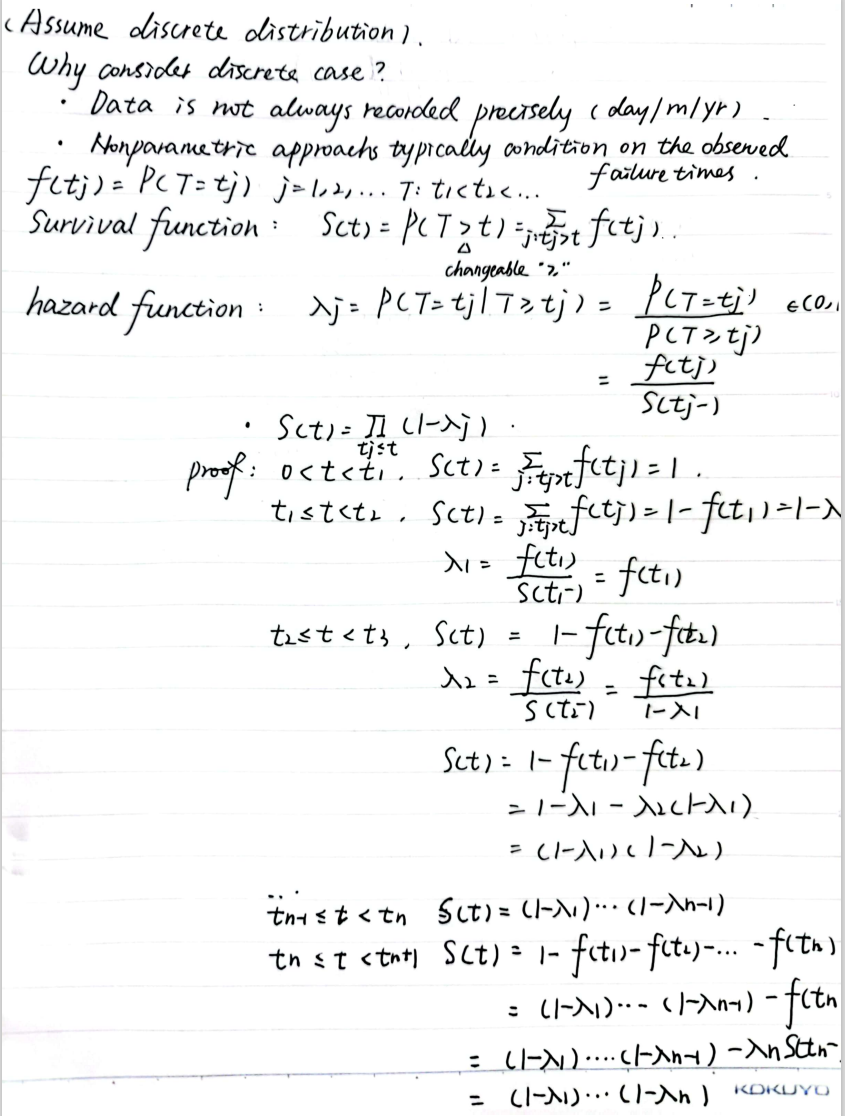 (Assume discrete distribution).
Why consider discrete case?
· Data is not always recorded precisely (day/m/yr).
· Nonparametric approachs typically condition on the observed
failure times.
f(tj) = P(T=tj) j=1,2,... T: t1<t2<...
Survival function: S(t) = P(T>t) = Σ_{j:tj>t} f(tj).
△
changeable "≥"
hazard function: λj = P(T=tj|T≥tj) = P(T=tj) / P(T≥tj) ∈(0,
= f(tj) / S(tj-)
· S(t) = Π_{tj≤t} (1-λj).
proof: 0<t<t1, S(t) = Σ_{j:tj>t} f(tj) = 1.
t1≤t<t2, S(t) = Σ_{j:tj>t} f(tj) = 1-f(t1) = 1-λ
λ1 = f(t1) / S(t1-) = f(t1)
t2≤t<t3, S(t) = 1-f(t1)-f(t2)
λ2 = f(t2) / S(t2-) = f(t2) / 1-λ1
S(t) = 1-f(t1)-f(t2)
= 1-λ1-λ2(1-λ1)
= (1-λ1)(1-λ2)
...
tn-1≤t<tn S(t) = (1-λ1)...(1-λn-1)
tn≤t<tn+1 S(t) = 1-f(t1)-f(t2)-...-f(tn)
= (1-λ1)...(1-λn-1)-f(tn
= (1-λ1)....(1-λn-1)-λnS(tn-
= (1-λ1)...(1-λn) KOKUYO